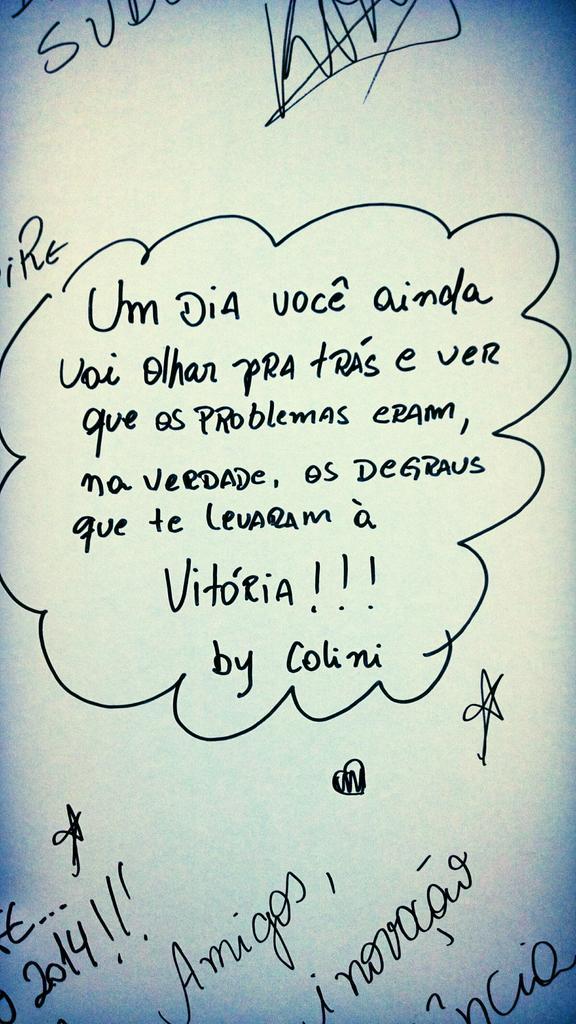 Um DiA você ainda
vai olhar pRA tRÁS e veR
que os PRoblemAS eRAm,
na veRDADe, os DeGRAUS
que te levARAm à
VitóRiA!!!
by Colini
2014!!
Amigos,
inovação